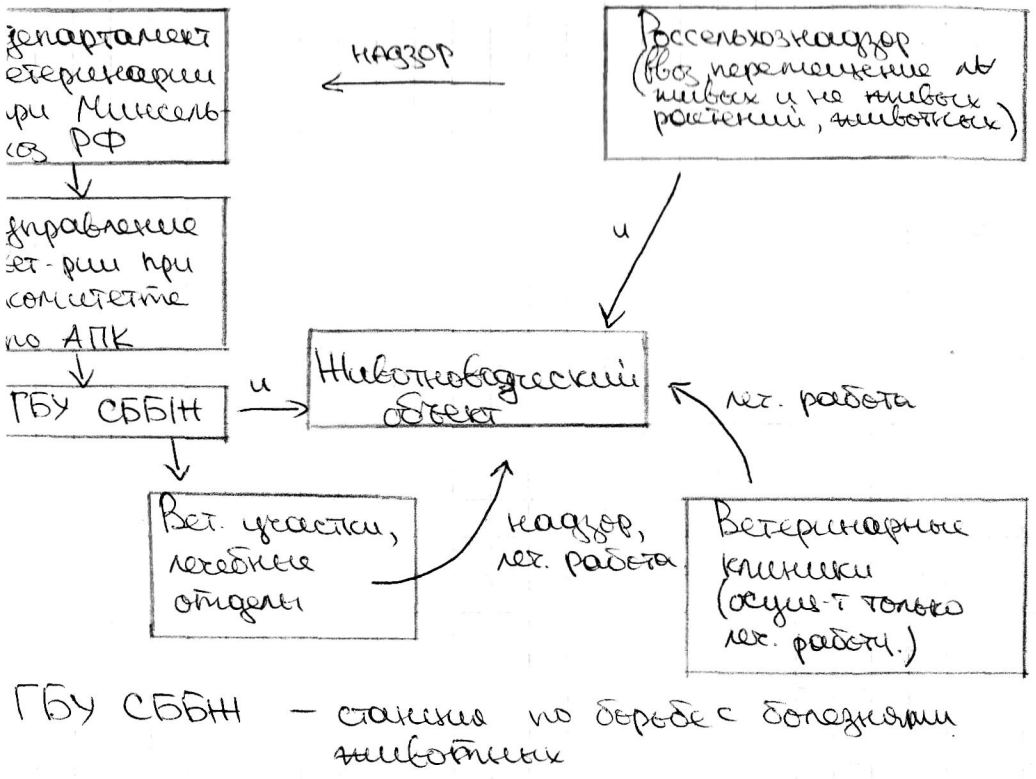 департамент
етеринарии
ри Минсель-
хоз РФ
надзор
Россельхознадзор
(ввоз, перемещение
живых и не живых
растений, животных)
управление
вет-рии при
комитетте
по АПК
и
ГБУ СББЖ
и
Животноводческий
объект
леч. работа
Вет. участки,
лечебные
отделы
надзор,
леч. работа
Ветеринарные
клиники
(осущ-т только
леч. работу.)
ГБУ СББЖ – станция по борьбе с болезнями
животных